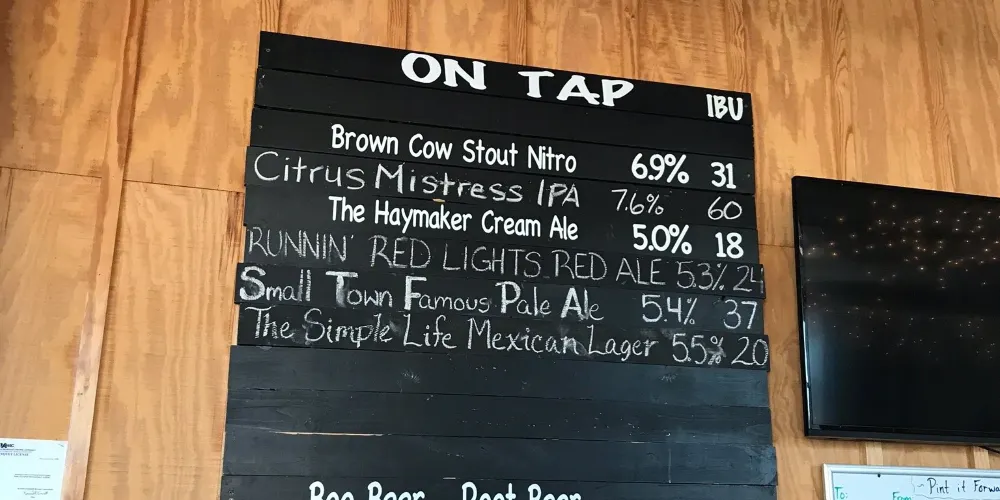 ON TAP IBU
Brown Cow Stout Nitro 6.9% 31
Citrus Mistress IPA 7.6% 60
The Haymaker Cream Ale 5.0% 18
RUNNIN' RED LIGHTS RED ALE 5.3% 24
Small Town Famous Pale Ale 5.4% 37
The Simple Life Mexican Lager 5.5% 20
Boo Beer Root Beer
Pint it Forwa
To: From